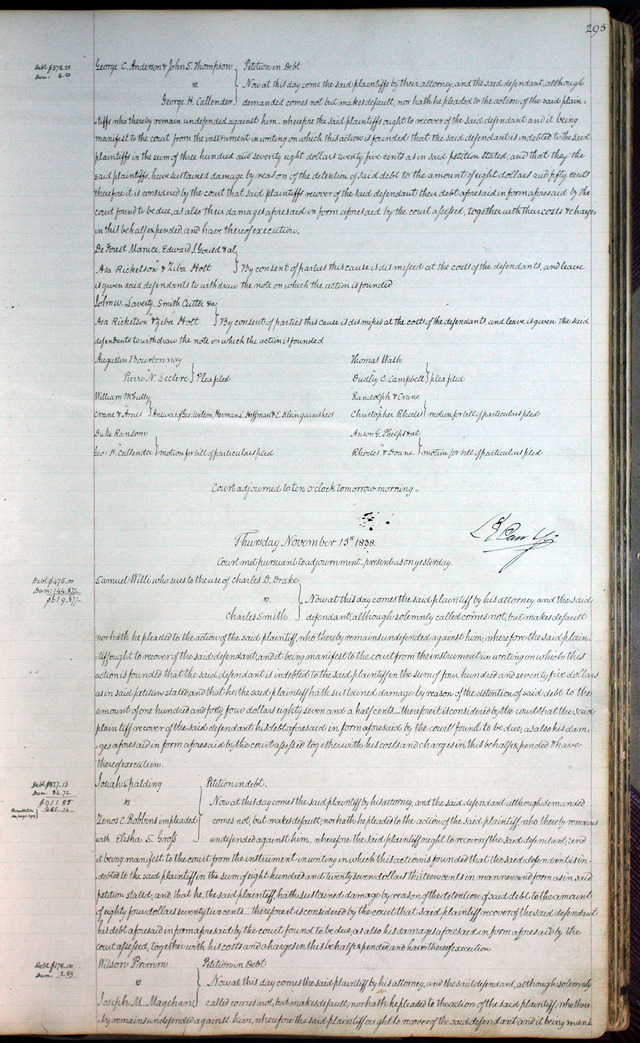 295
Debt $378.25
Dam: 8.50
George C. Anderson & John S. Thompson } Petition in Debt
vs. } Now at this day come the said plaintiffs by their attorney, and the said defendant, although
George H. Callender } demanded comes not but makes default, nor hath he pleaded to the action of the said plain-
tiffs who thereby remain undefended against him wherefore the said plaintiffs ought to recover of the said defendant and it being
manifest to the court from the instrument in writing on which this action is founded that the said defendant is indebted to the said
plaintiffs in the sum of three hundred and seventy eight dollars twenty five cents as in said petition stated, and that they the
said plaintiffs, have sustained damage by reason of the detention of said debt to the amount of eight dollars and fifty cents
therefore it is considered by the court that said plaintiffs recover of the said defendant their debt aforesaid in form aforesaid by the
court found to be due, as also their damages aforesaid in form aforesaid by the court assessed, together with their costs & charges
in this behalf expended and have thereof execution.
De Forest Manice, Edward J. Gould & al
Asa Ricketson & Ziba Holt } By consent of parties this cause is dismissed at the costs of the defendants, and leave
is given said defendants to withdraw the note on which the action is founded
John W. Laverty, Smith Cutter &a
Asa Ricketson & Ziba Holt } By consent of parties this cause is dismissed at the costs of the defendants and leave is given the said
defendants to withdraw the note on which the action is founded
Augustin Bourbonnay
Pierre N. Leclerc } Plea filed
Thomas Wash
Dudley C. Campbell } plea filed
William McGilly
Crane & Ames } Answer of Geo. Wilson, Herman L. Hoffman & E. Klein garnishees
Randolph & Crane
Christopher Rhodes } motion for bill of particulars filed
Duke Ransom
Geo. H. Callender } motion for bill of particulars filed
Anson G. Phelps & al
Rhodes & Doane } motion for bill of particulars filed
Court adjourned to ten o'clock tomorrow morning.
Thursday November 15th 1838.
Court met pursuant to adjournment, present as on yesterday.
Debt $475.00
Dam: 144.87½
$619.87½
Samuel Willi who sues to the use of Charles D. Drake
vs. } Now at this day comes the said plaintiff by his attorney, and the said
Charles Smith } defendant although solemnly called comes not, but makes default
nor hath he pleaded to the action of the said plaintiff, who thereby remains undefended against him, wherefore the said plain-
tiff ought to recover of the said defendant, and it being manifest to the court from the instrument in writing on which this
action is founded that the said defendant is indebted to the said plaintiff in the sum of four hundred and seventy five dollars
as in said petition stated, and that he, the said plaintiff hath sustained damage by reason of the detention of said debt to the
amount of one hundred and forty four dollars eighty seven and a half cents – therefore it is considered by the court that the said
plaintiff recover of the said defendant his debt aforesaid in form aforesaid by the court found to be due, as also his dam-
ages aforesaid in form aforesaid by the court assessed together with his costs and charges in this behalf expended & have
thereof execution.
Debt $827.13
Dam: 84.72
$911.85
Josiah Spalding } Petition in debt.
vs } Now at this day comes the said plaintiff by his attorney, and the said defendant although demanded
Zenos C. Robbins impleaded } comes not, but makes default, nor hath he pleaded to the action of the said plaintiff, who thereby remains
with Elisha S. Groß } undefended against him, wherefore the said plaintiff ought to recover of the said defendant, and
it being manifest to the court from the instrument in writing in which this action is founded that the said defendant is in-
debted to the said plaintiff in the sum of eight hundred and twenty seven dollars thirteen cents in manner and form as in said
petition stated, and that he, the said plaintiff, hath sustained damage by reason of the detention of said debt to the amount
of eighty four dollars seventy two cents – therefore it is considered by the court that said plaintiff recover of the said defendant
his debt aforesaid in form aforesaid by the court found to be due, as also his damages aforesaid in form aforesaid by the
court assessed, together with his costs and charges in this behalf expended and have thereof execution
Wilson Primm } Petition in Debt
vs } Now at this day comes the said plaintiff by his attorney, and the said defendant, although solemnly
Joseph M. Magehan } called comes not, but makes default, nor hath he pleaded to the action of the said plaintiff, who there-
by remains undefended against him, wherefore the said plaintiff ought to recover of the said defendant and it being mani